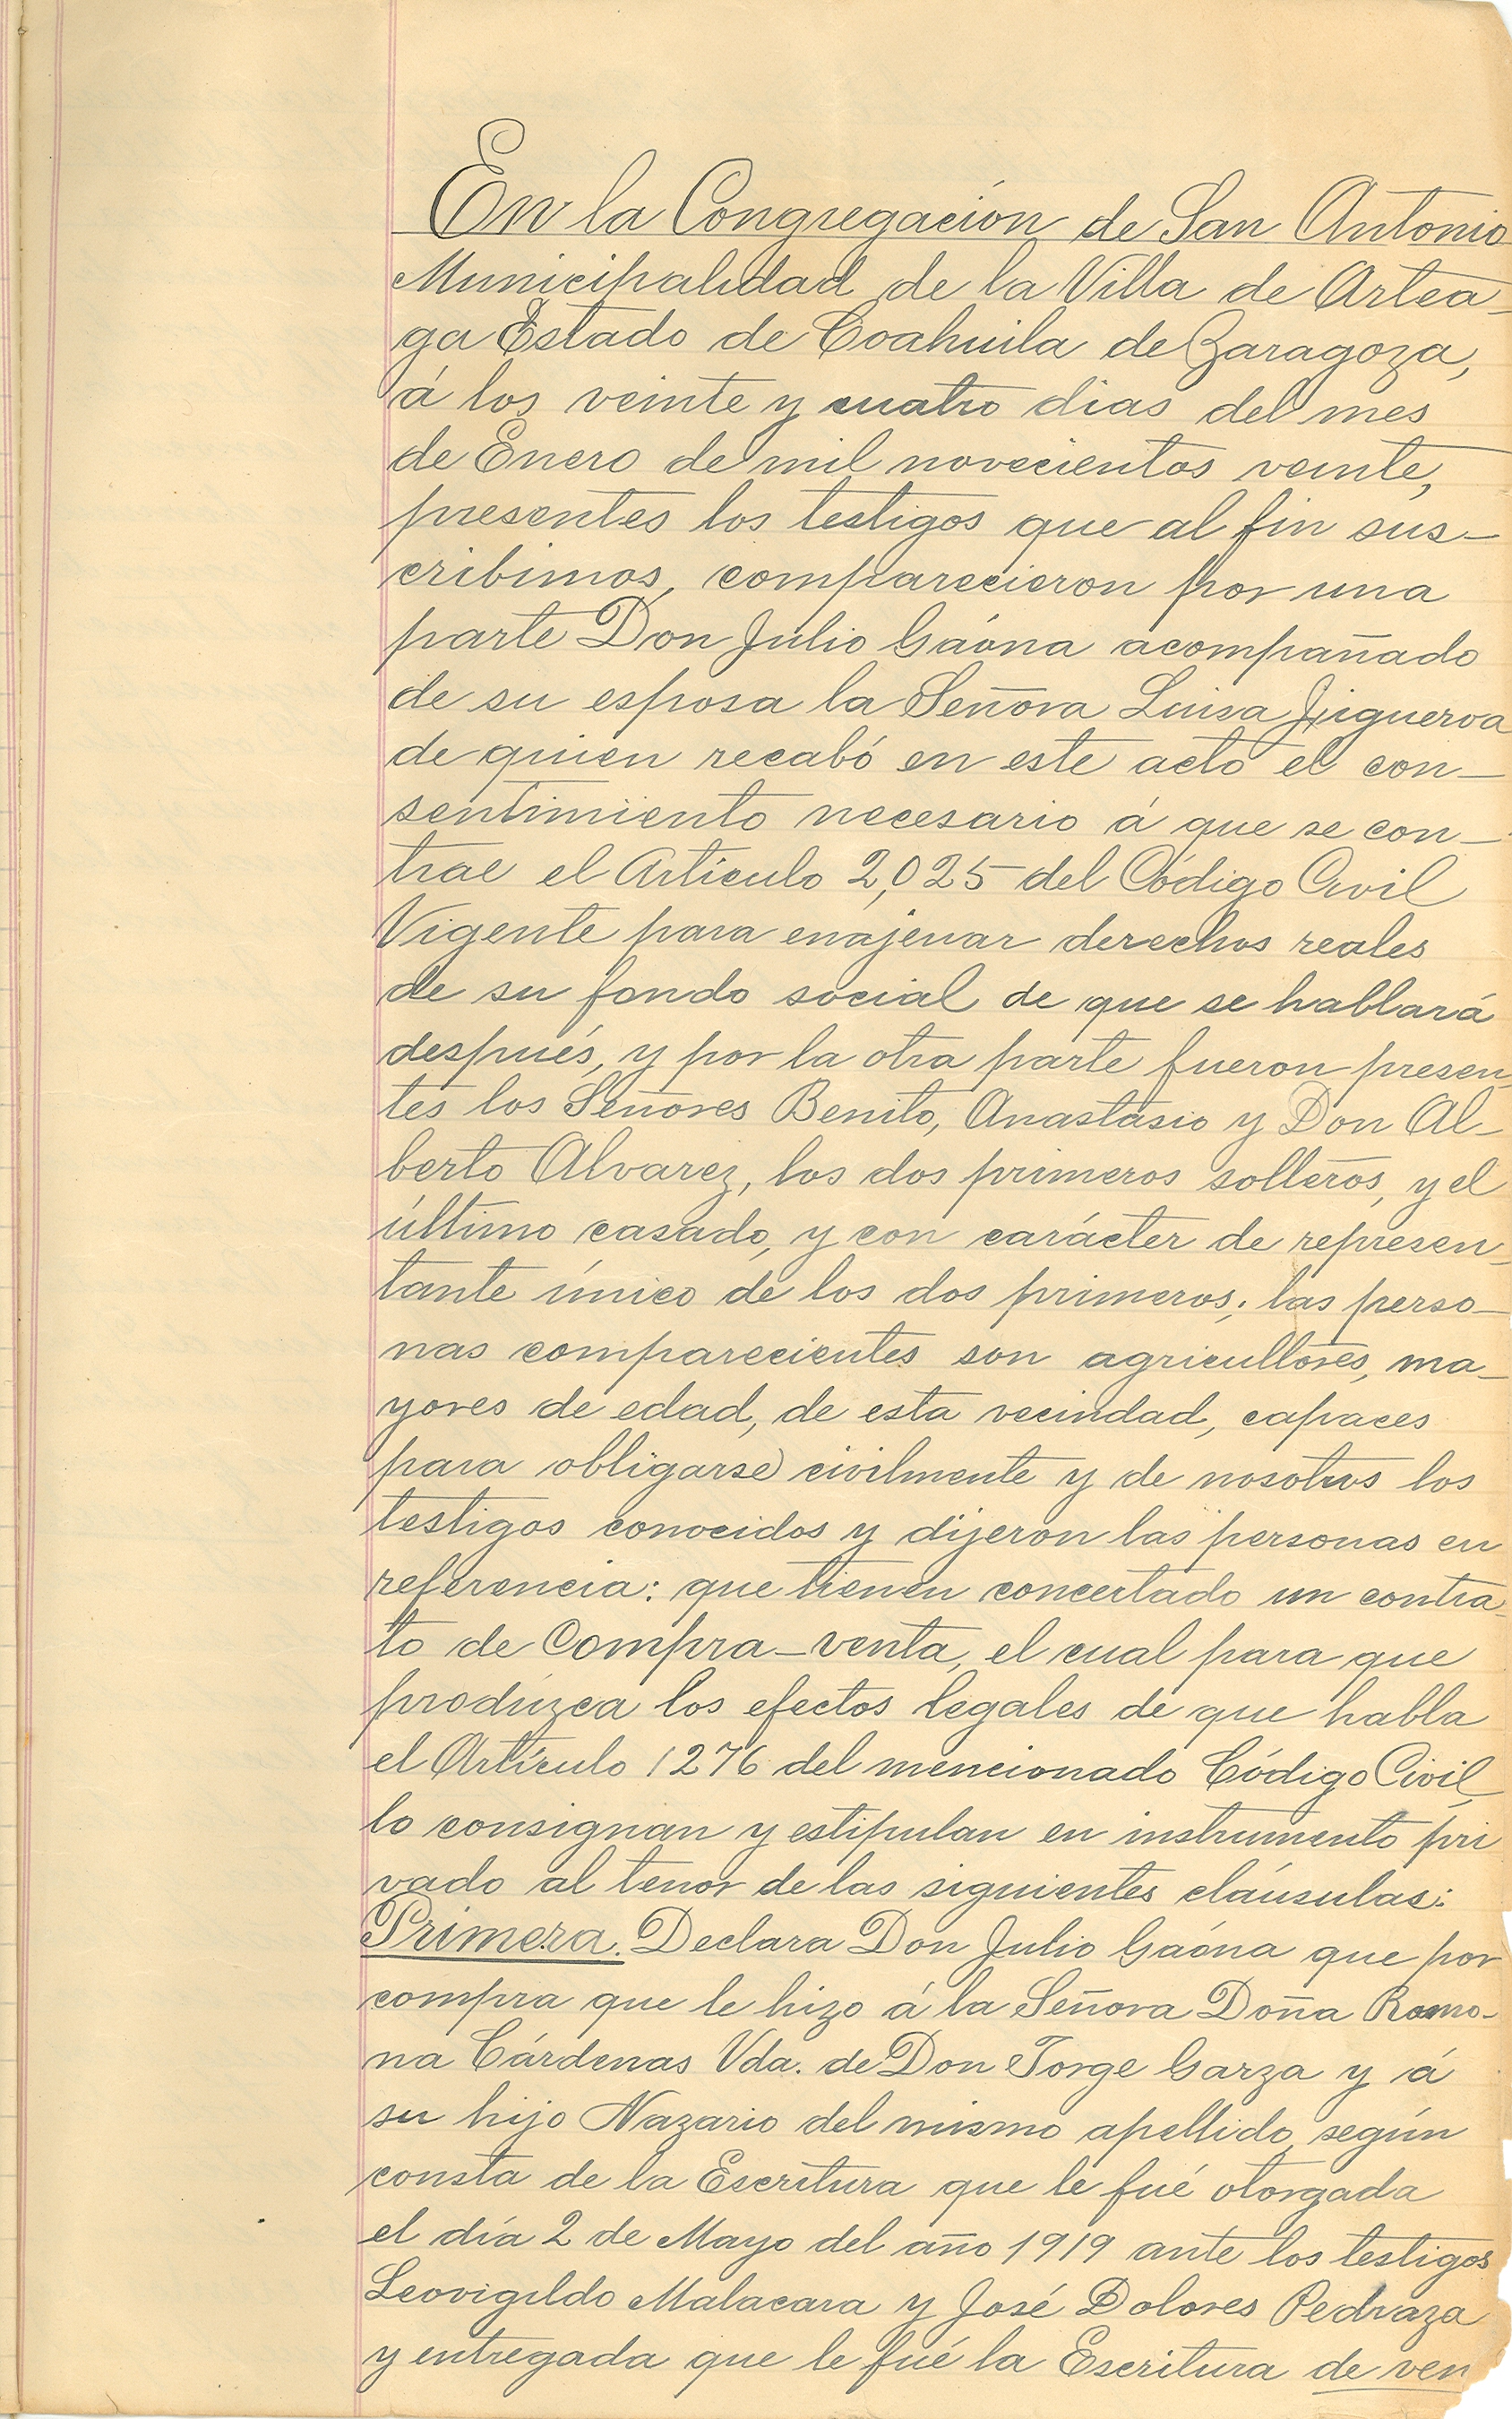 En la Congregación de San Antonio
Municipalidad de la Villa de Artea-
ga Estado de Coahuila de Zaragoza,
á los veinte y cuatro dias del mes
de Enero de mil novecientos veinte,
presentes los testigos que al fin sus-
cribimos, comparecieron por una
parte Don Julio Gaóna acompañado
de su esposa la Señora Luisa Jigueroa
de quien recabó en este acto el con-
sentimiento necesario á que se con-
trae el Artículo 2,025 del Código Civil
Vigente para enajenar derechos reales
de su fondo social de que se hablará
después, y por la otra parte fueron presen-
tes los Señores Benito, Anastasio y Don Al-
berto Alvarez, los dos primeros solteros, y el
último casado, y con carácter de represen-
tante único de los dos primeros; las perso-
nas comparecientes son agricultores, ma-
yores de edad, de esta vecindad, capaces
para obligarse civilmente y de nosotros los
testigos conocidos y dijeron las personas en
referencia: que tienen concertado un contra-
to de Compra-venta, el cual para que
prodúzca los efectos legales de que habla
el Artículo 1276 del mencionado Código Civil,
lo consignan y estipulan en instrumento pri
vado al tenor de las siguientes cláusulas:
Primera. Declara Don Julio Gaóna que por
compra que le hizo á la Señora Doña Ramo-
na Cárdenas Vda. de Don Jorge Garza y á
su hijo Nazario del mismo apellido, según
consta de la Escritura que le fué otorgada
el día 2 de Mayo del año 1919 ante los testigos
Leovigildo Malacara y José Dolores Pedraza
y entregada que le fué la Escritura de ven